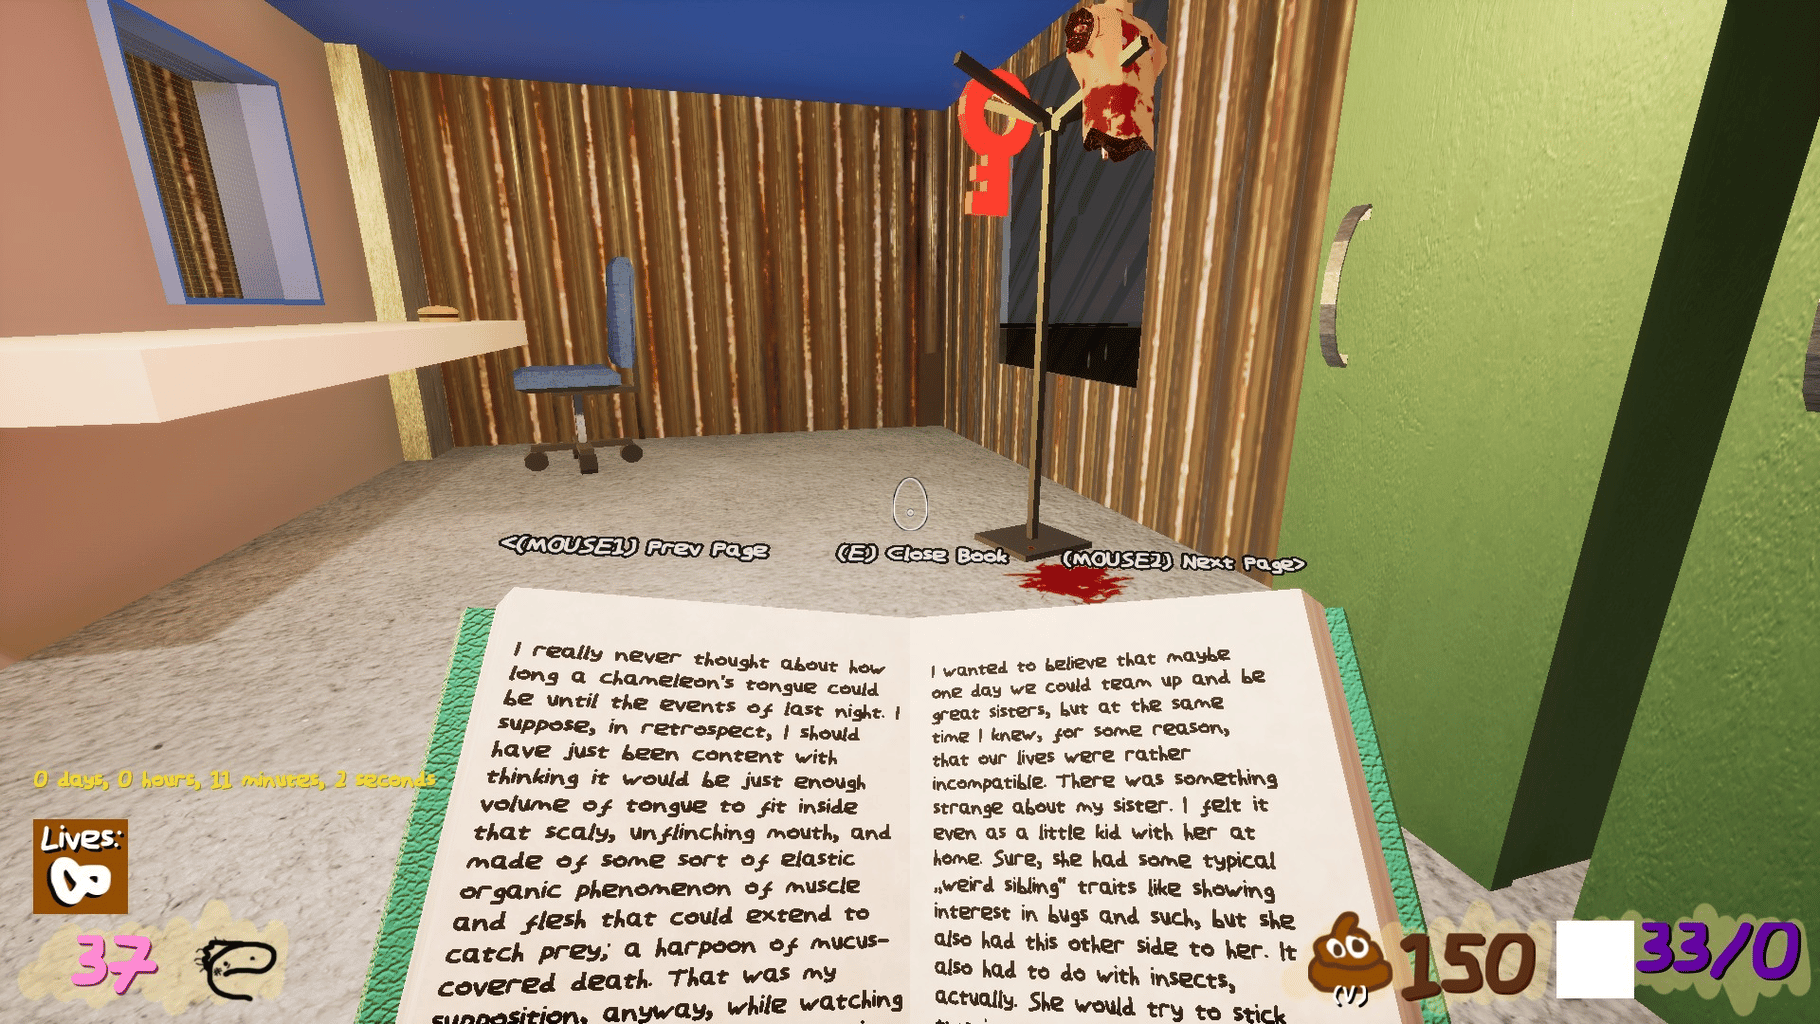 <(MOUSE1) Prev Page
(E) Close Book
(MOUSE2) Next Page>
I really never thought about how
long a chameleon's tongue could
be until the events of last night. I
suppose, in retrospect, I should
have just been content with
thinking it would be just enough
volume of tongue to fit inside
that scaly, unflinching mouth, and
made of some sort of elastic
organic phenomenon of muscle
and flesh that could extend to
catch prey; a harpoon of mucus-
covered death. That was my
supposition, anyway, while watching
I wanted to believe that maybe
one day we could team up and be
great sisters, but at the same
time I knew, for some reason,
that our lives were rather
incompatible. There was something
strange about my sister. I felt it
even as a little kid with her at
home. Sure, she had some typical
„weird sibling" traits like showing
interest in bugs and such, but she
also had this other side to her. It
also had to do with insects,
actually. She would try to stick
0 days, 0 hours, 11 minutes, 2 seconds
Lives:
37
(V)
150
33/0